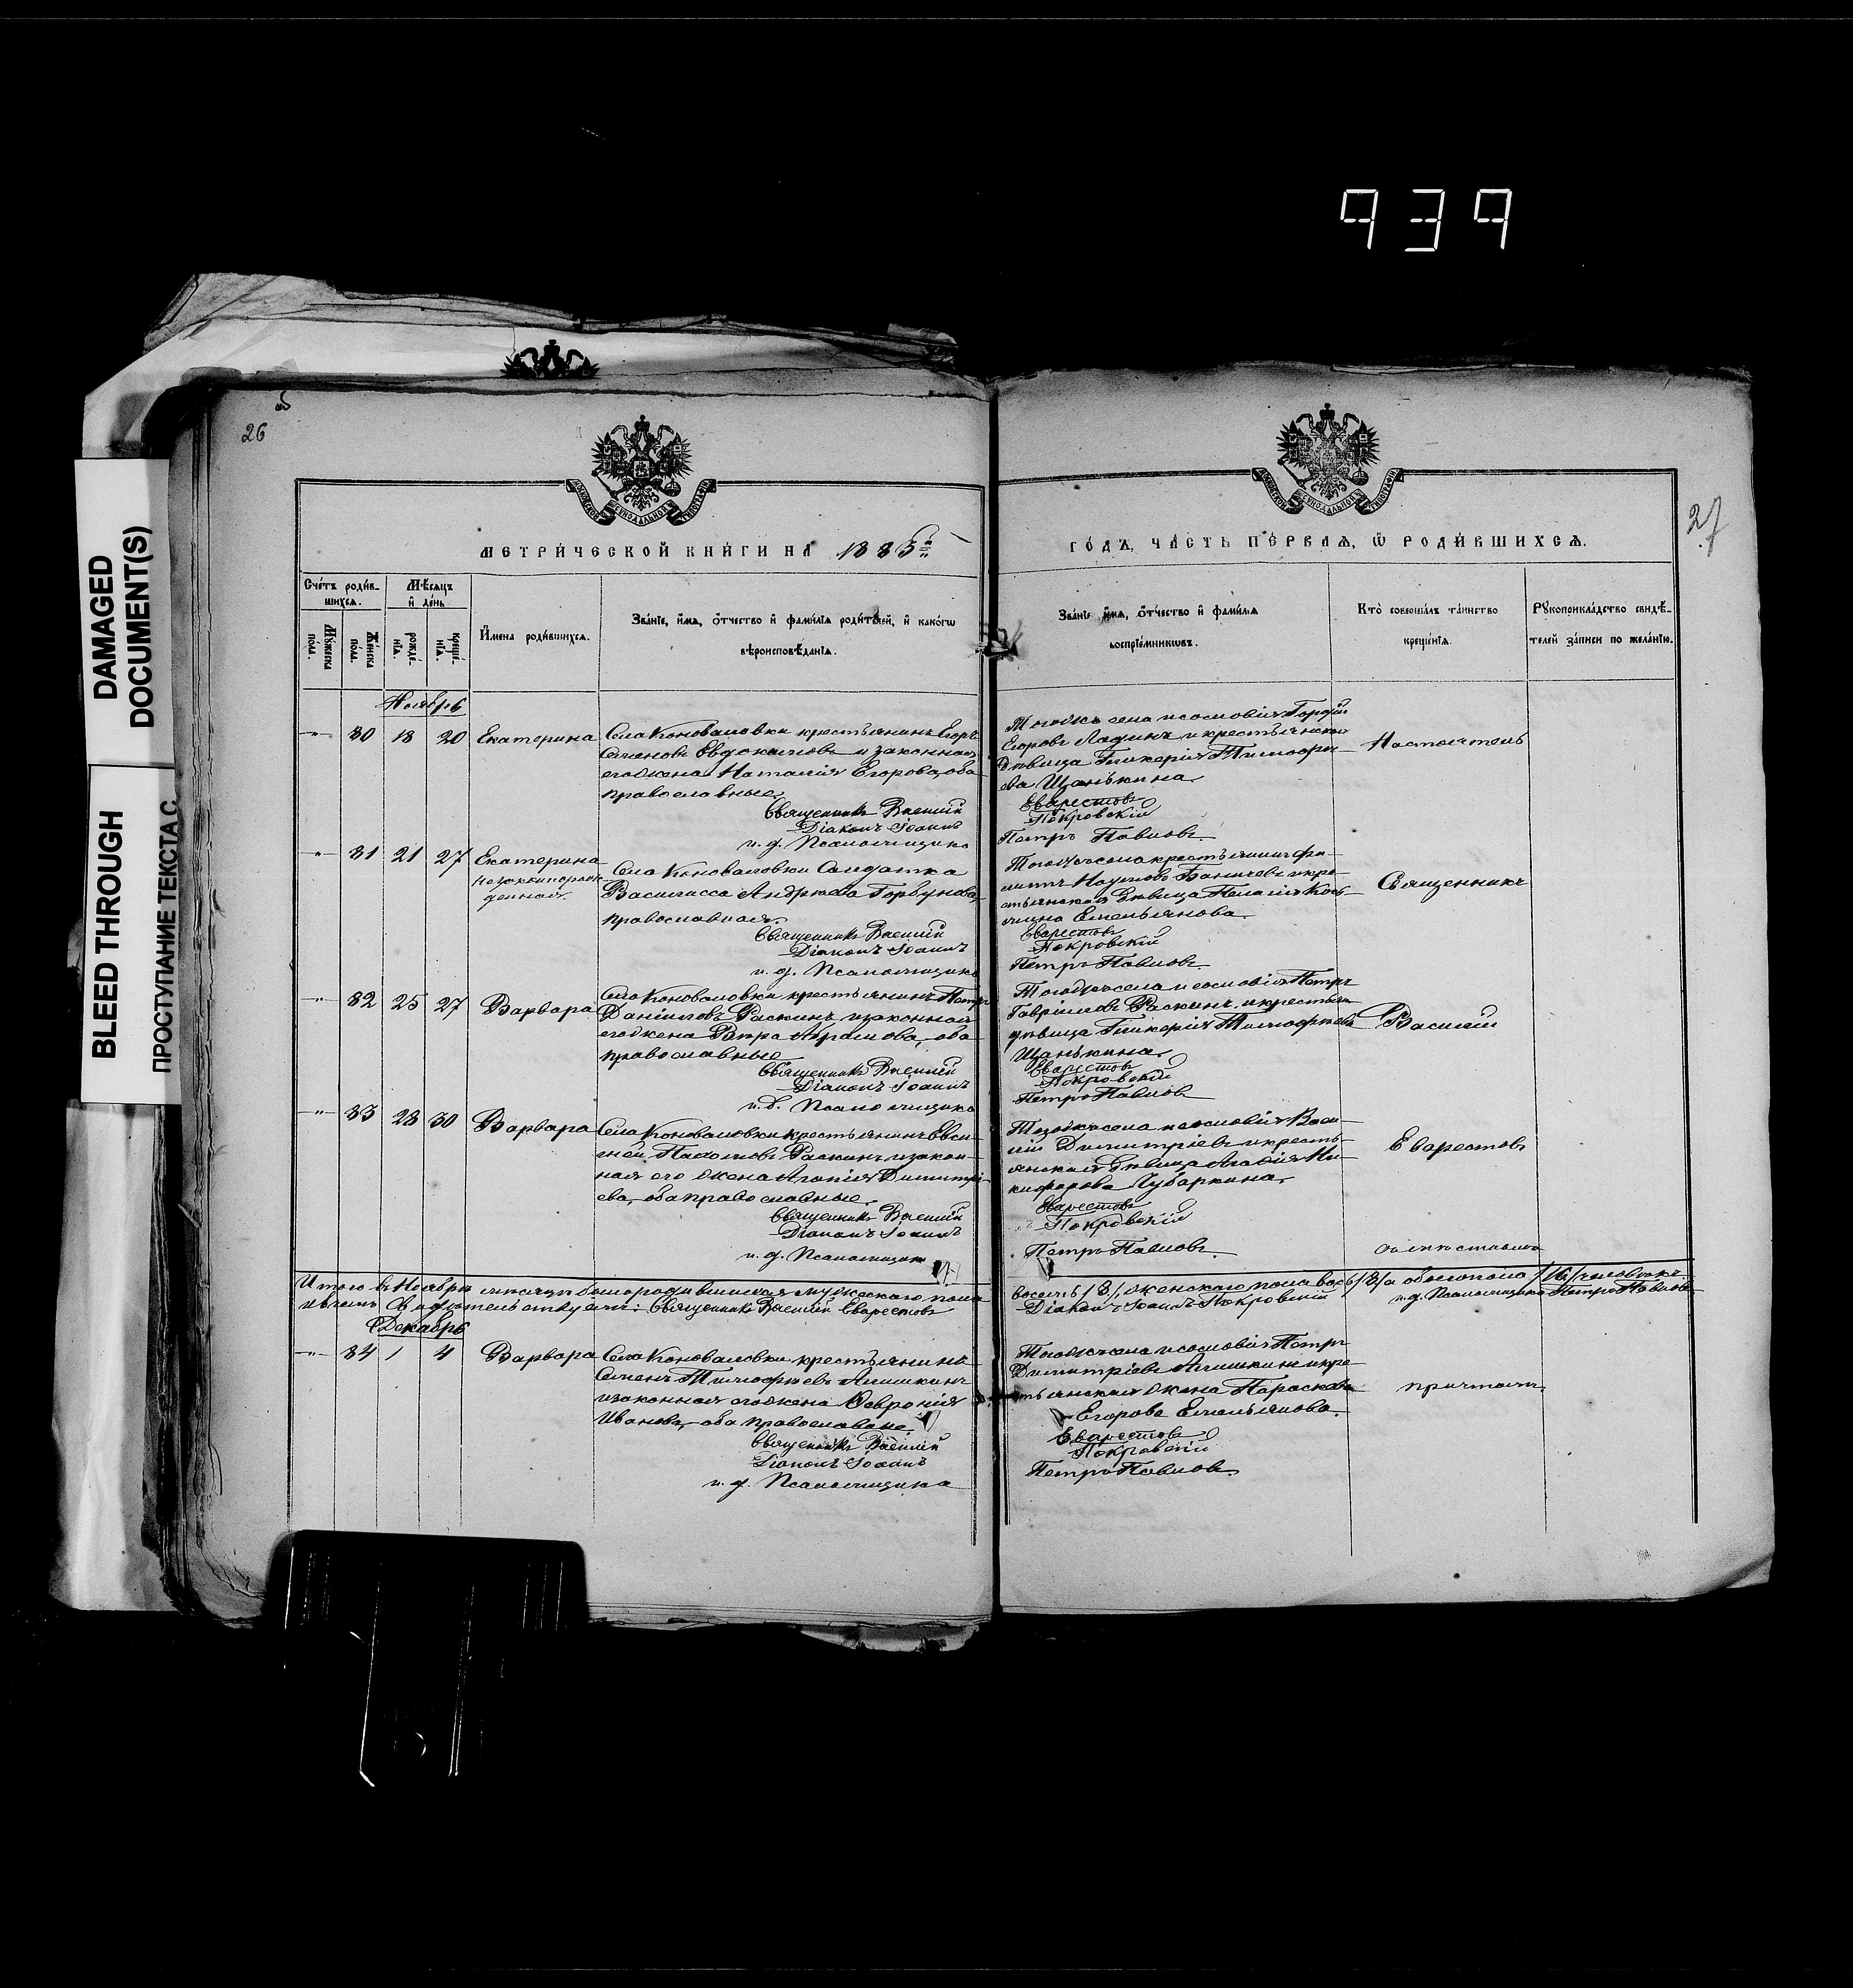 939
DAMAGED
DOCUMENT(S)
BLEED THROUGH
ПРОСТУПАНИЕ ТЕКСТА С
26
27
МЕТРИ́ЧЕСКОЙ КНИ́ГИ НА 1885
ГО́ДЪ, ЧА́СТЬ ПЕ́РВАѦ, Ѿ РОДИ́ВШИХСѦ.
Сче́тъ роди́в-
шихсѧ.
Мѣ́сѧцъ
и́ де́нь
Мꙋ́жеска
пола.
Же́нска
пола.
рожде́-
нїѧ.
креще́-
нїѧ.
И҆мена роди́вшихсѧ.
Зва́нїе, и҆́мѧ, ѻ҆́тчество и҆ фами́лїѧ роди́телей, и҆ како́гѡ
вѣроисповѣ́данїѧ.
Зва́нїе и҆́мѧ, ѻ҆́тчество и҆ фами́лїѧ
воспрїе́мникѡвъ.
Кто̀ соверша́лъ та́инство
креще́нїѧ.
Рꙋкоприкла́дство свидѣ́-
телей за́писи по жела́нїю.
Ноябрь
30 18 20 Екатерина
Села Коноваловки крестьянинъ Егоръ
Семеновъ Евдокимовъ и законная
его жена Наталия Егорова, оба
православные.
Священникъ Василий
Діаконъ Іоаннъ
и. д. Псаломщика
Того жъ села и сословія Гордій
Егоровъ Ладинъ и крестьянская
дѣвица Гликерія Тимофе-
ева Щанькина.
Еварестовъ
Покровскій
Петръ Павловъ.
Настоятель
31 21 27 Екатерина
незаконнорож-
денная.
Села Коноваловки Солдатка
Василисса Андреева Горбунова,
православная.
Священникъ Василий
Діаконъ Іоаннъ
и. д. Псаломщика
Того жъ села крестьянинъ Фи-
липпъ Наумовъ и кре-
стьянская дѣвица Пелагія Козь-
мина Емельянова.
Еварестовъ
Покровскій
Петръ Павловъ.
Священникъ
32 25 27 Варвара
Села Коноваловки крестьянинъ Петръ
Даніиловъ Раскинъ и законная
его жена Абрамова, оба
православные
Священникъ Василий
Діаконъ Іоаннъ
и. д. Псаломщика
Того жъ села и сословія Петръ
Гавріиловъ Раскинъ и крестьян.
дѣвица Гликерія Тимофеева
Щанькина.
Еварестовъ
Покровскій
Петръ Павловъ
Василий
33 28 30 Варвара
Села Коноваловки крестьянинъ Евси-
гней Раскинъ и закон-
ная его жена Агапія Димитрі-
ева, оба православные.
Священникъ Василий
Діаконъ Іоаннъ
и. д. Псаломщика
Того жъ села и сословія Васи-
лій Димитріевъ и кресть-
янская дѣвица Ни-
кифорова Губаркина.
Еварестовъ
Покровскій
Петръ Павловъ.
Еварестовъ
Итого въ Ноябрѣ мѣсяцѣ было родившихся мужескаго пола
восемь /8/, женскаго пола восемь /8/ а обоего пола /16/ человѣкъ.
Священникъ Василий Еварестовъ
Діаконъ Іоаннъ Покровскій
и. д. Псаломщика Петръ Павловъ
Декабрь
34 1 4 Варвара
Села Коноваловки крестьянинъ
Семенъ Тимофеевъ Алишкинъ
и законная его жена Февронія
Иванова, оба православные.
Священникъ Василий
Діаконъ Іоаннъ
и. д. Псаломщика
Того жъ села и сословія Петръ
Димитріевъ Алишкинъ и кре-
стьянская жена Параскева
Егорова Емельянова.
Еварестовъ
Покровскій
Петръ Павловъ.
причтомъ.